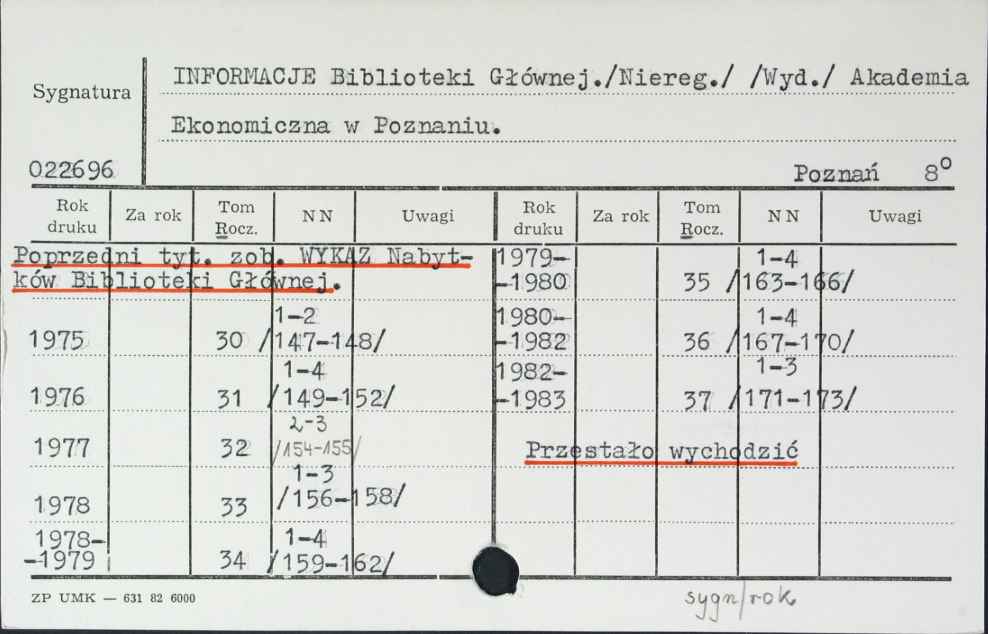 INFORMACJE Biblioteki Głównej./Niereg./ /Wyd./ Akademia
Sygnatura
Ekonomiczna w Poznaniu.
022696
Poznań 8°
Rok druku Za rok Tom Rocz. NN Uwagi Rok druku Za rok Tom Rocz. NN Uwagi
Poprzedni tyt. zob. WYKAZ Nabyt-
ków Biblioteki Głównej.
1-2
1975 30 /147-148/
1-4
1976 31 /149-152/
2-3
1977 32 /154-155/
1-3
1978 33 /156-158/
1978- 1-4
-1979 34 /159-162/
1979- 1-4
-1980 35 /163-166/
1980- 1-4
-1982 36 /167-170/
1982- 1-3
-1983 37 /171-173/
Przestało wychodzić
ZP UMK — 631 82 6000
sygn/rok